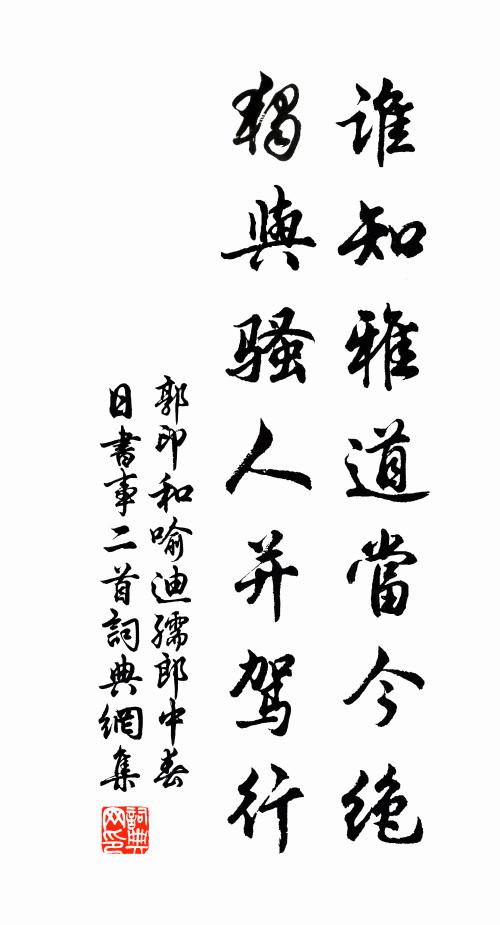 誰知雅道當今絶
獨與騷人并駕行
郭印和喻迪孺郎中春
日書事二首詞典網集
詞典
网印